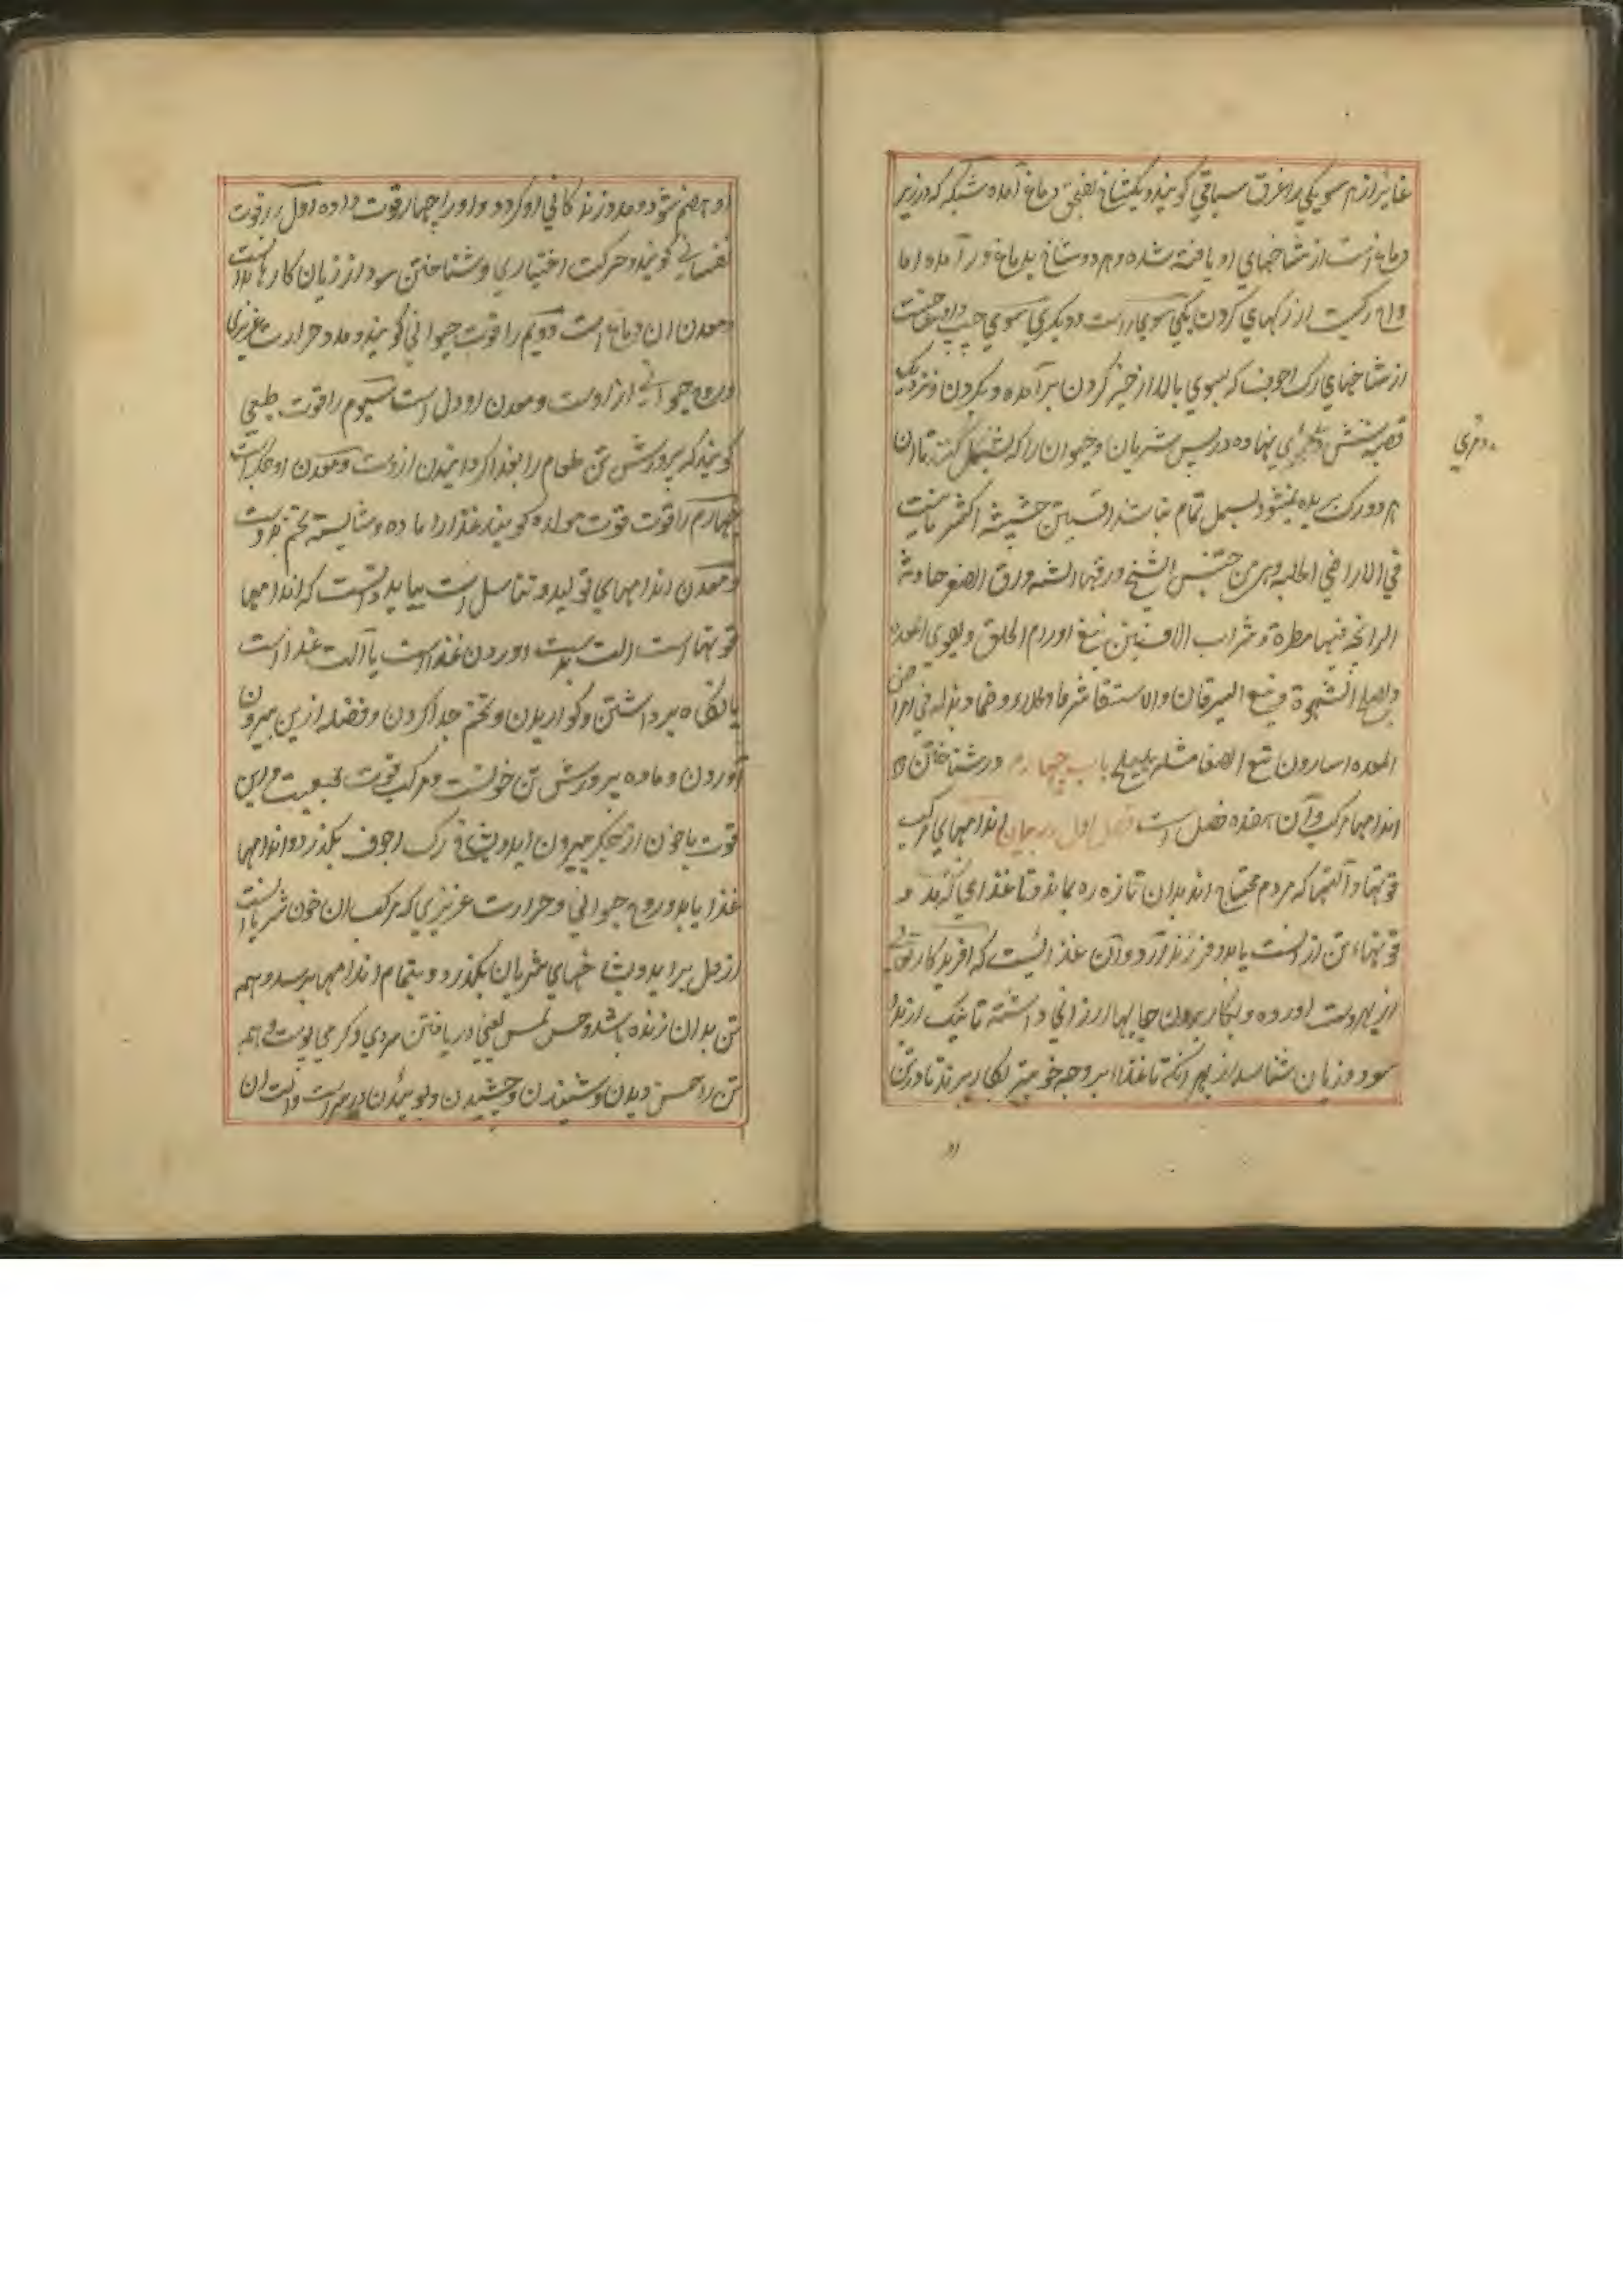 غایر از هر سوی یکی را عرق سباتی گویند و یکشاخ بعمق دماغ آمده شبکه که در زیر
دماغ است از شاخهای او بافته شده و هر دو شاخ بدماغ در آمده اما
وداج رکیست از رکهای کردن یکی سوی راست و دیگری سوی چپ و
از شاخهای رک اجوف که بسوی بالا از جیز کردن بر آمده و بکردن و نزدیک
قصبه شش و مری نهاده در پس شریان و حیوان را که بسمل کنند تا آن
هر دو رک بریده نشود بسمل تمام نباشد افسنتین حشیشة اکثر ما ینبت
في الاراضي الجلبه وهي من جنس الشيخ ورقها اشبه ورق الصعتر حادة
الرائحه فيها مطرة وشراب الافسنتین ینفع اورام الحلق ویقوی المعده
ویصلح الشهوة وینفع الیرقان والاستسقا شربا وطلاء وضمادا في امراض
المعده اسارون باب چهارم در شناختن
اندامها مرکب و آن هفده فصل است فصل اول در بیان اندامهای مرکب
قوتها و آلتها که مردم محتاج اند بدان تا زنده بماند و تا غذای
قوتهاء تن از است یابد و فرزند آرد و آن غذائیست که افریدکار تعالی
از بهر دست آورده و بکار بردن جایها ارزانی داشته تا نیک از بد
سود و زیان شناسد از بهر آنکه تا غذا بر وجه خوبتر بکار برند تا در تن
او
مری
او هضم شود و مدد زندکانی او کردد و او را چهار قوت داده اول را قوت
نفسانی گویند و حرکت اختیاری و شناختن سود از زیان کارها بدانست
و معدن آن دماغ است دویم را قوت حیوانی گویند و مدد حرارت غریزی
و روح حیوانی از اوست و معدن او دل است سیوم را قوت طبیعی
گویند که پرورش تن طعام را بغذا کردانیدن ازوست و معدن او جکر است
چهارم را قوت قوت مولده گویند غذا را ماده و شایسته تخم
و معدن اندامهای تولید و تناسل است بباید دانست که اندامها
قوتها است آلت بدست آوردن غذا است یا آلت غذا است
یا نکاه برداشتن و کواریدن و تخم جدا کردن و فضله ازین بیرون
آوردن و ماده پرورش تن خونست و مرکب قوت طبیعیت و این
قوت با خون از جکر بیرون آید و بشاخ رک اجوف بکذرد و اندامها
غذا یابد و روح حیوانی و حرارت غریزی که مرکب ان خون شریانست
از دل بر آید و بشاخهای شریان بکذرد و بتمام اندامها برسد و همه
تن بدان زنده باشد و حس لمس یعنی دریافتن سردی و کرمی پوست و همه
تن را حس دیدن و شنیدن و چشیدن و بوئیدن در سر است و آلت ان